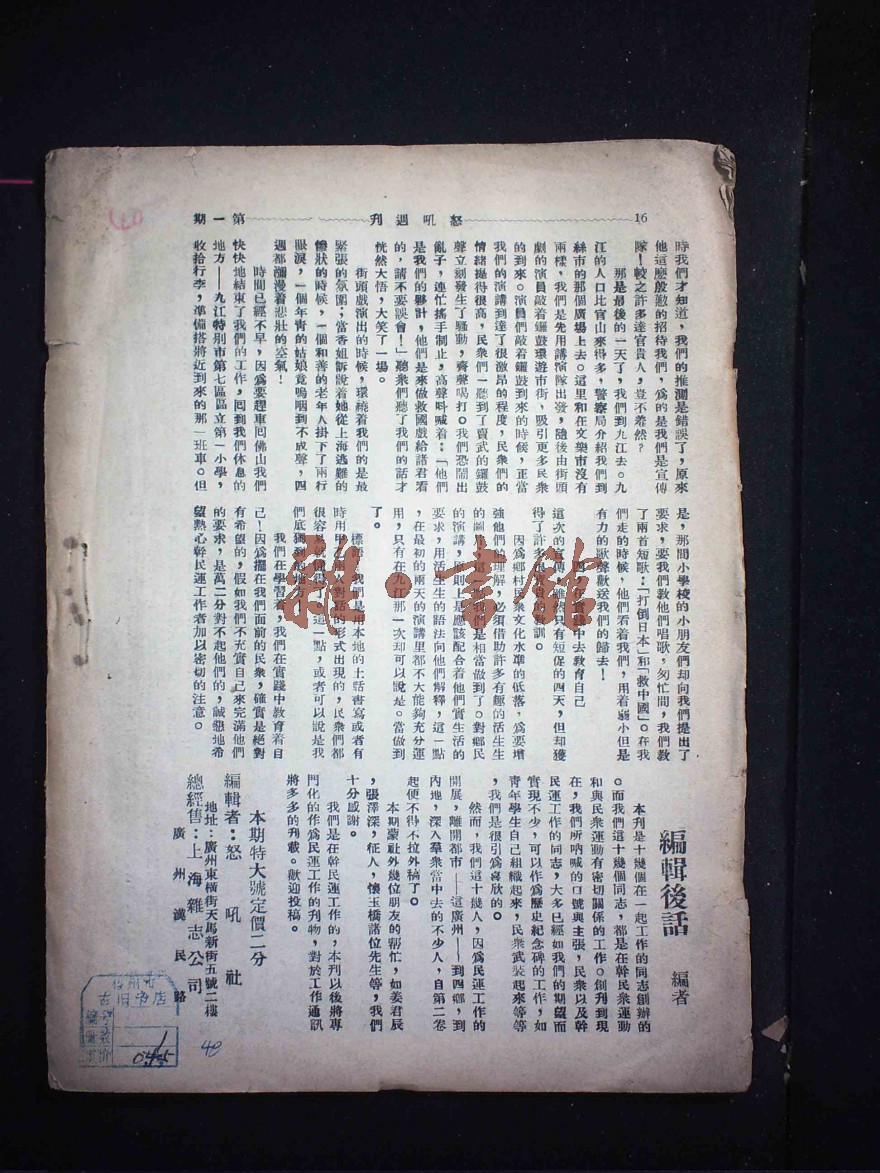 16
怒吼週刊
第一期
時我們才知道，我們的推測是錯誤了，原來
他這麼般勤的招待我們，爲的是我們是宣傳
隊！較之許多達官貴人，豈不羞然？
那是最後的一天了，我們到九江去。九
江的人口比官山來得多，警察局介紹我們到
絲市的那個廣場上去。這里和在文樂市沒有
兩樣，我們是先用講演隊出發，隨後由街頭
劇的演員敲着鑼鼓環遊市街，吸引更多民衆
的到來。演員們敲着鑼鼓到來的時候，正當
我們的演講到達了很激昂的程度，民衆們的
情緒提得很高，民衆們一聽到了賣武的鑼鼓
聲立刻發生了騷動，齊聲喝打。我們恐鬧出
亂子，連忙搖手制止，高聲呌喊着：「他們
是我們的夥計，他們是來做救國戲給諸君看
的，請不要誤會！」聽衆們聽了我們的話才
恍然大悟，大笑了一場。
街頭戲演出的時候，環繞着我們的是最
緊張的氛圍；當香姐訴說着她從上海逃難的
慘狀的時候，一個和善的老年人掛下了兩行
眼淚，一個年青的姑娘竟嗚咽到不成聲，四
週都瀰漫着悲壯的空氣！
時間已經不早，因爲要趕車囘佛山我們
快快地結束了我們的工作，囘到我們休息的
地方——九江特別市第七區區立第一小學，
收拾行李，準備搭將近到來的那一班車。但
是，那間小學校的小朋友們却向我們提出了
要求，要我們教他們唱歌，匆忙間，我們教
了兩首短歌：「打倒日本」和「救中國」。在我
們走的時候，他們看着我們，用着弱小但是
有力的歌聲歡送我們的歸去！
四，在實踐中去教育自己
這次的宣傳，雖然只有短促的四天，但却獲
得了許多很寶貴的教訓。
因爲鄉村民衆文化水準的低落，爲要增
強他們的理解，必須借助許多有趣的活生生
的圖片，這一點我們是相當做到了。對鄉民
的演講，原則上是應該配合着他們實生活的
要求，用活生生的語法向他們解釋，這一點
，在最初的兩天的演講里都不大能夠充分運
用，只有在九江那一次却可以說是。當做到
了。
標語，我們是用本地的土話書寫或者有
時用甲乙兩人對話的形式出現的，民衆們都
很容易就懂得，這一點，或者可以說是我
們底獨到的地方。
我們在學習着，我們在實踐中教育着自
己！因爲擺在我們面前的民衆，確實是絕對
有希望的，假如我們不充實自己來完滿他們
的要求，是萬二分對不起他們的，誠懇地希
望熱心幹民運工作者加以密切的注意。
編輯後話
編者
本刊是十幾個在一起工作的同志創辦的
。而我們這十幾個同志，都是在幹民衆運動
和與民衆運動有密切關係的工作。創刊到現
在，我們所吶喊的口號與主張，民衆以及幹
民運工作的同志，大多已經如我們的期望而
實現不少，可以作爲歷史紀念碑的工作，如
青年學生自己組織起來，民衆武裝起來等等
，我們是很引爲喜欣的。
然而，我們這十幾人，因爲民運工作的
開展，離開都市——這廣州——到四鄉，到
內地，深入羣衆當中去的不少人，自第二卷
起便不得不拉外稿了。
本期蒙社外幾位朋友的帮忙，如姜君辰
，張澤深，征人，懷玉橋諸位先生等，我們
十分感謝。
我們是在幹民運工作的，本刊以後將專
門化的作爲民運工作的刋物，對於工作通訊
將多多的刊載。歡迎投稿。
本期特大號定價二分
編輯者：怒吼社
地址：廣州東橫街天馬新街五號二樓
總經售：上海雜志公司
廣州漢民路
雜·書館
古旧书店
40